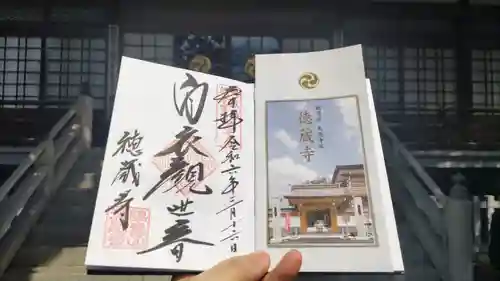 奉拝
令和六年三月十六日
白衣観世音
徳蔵寺
徳蔵寺